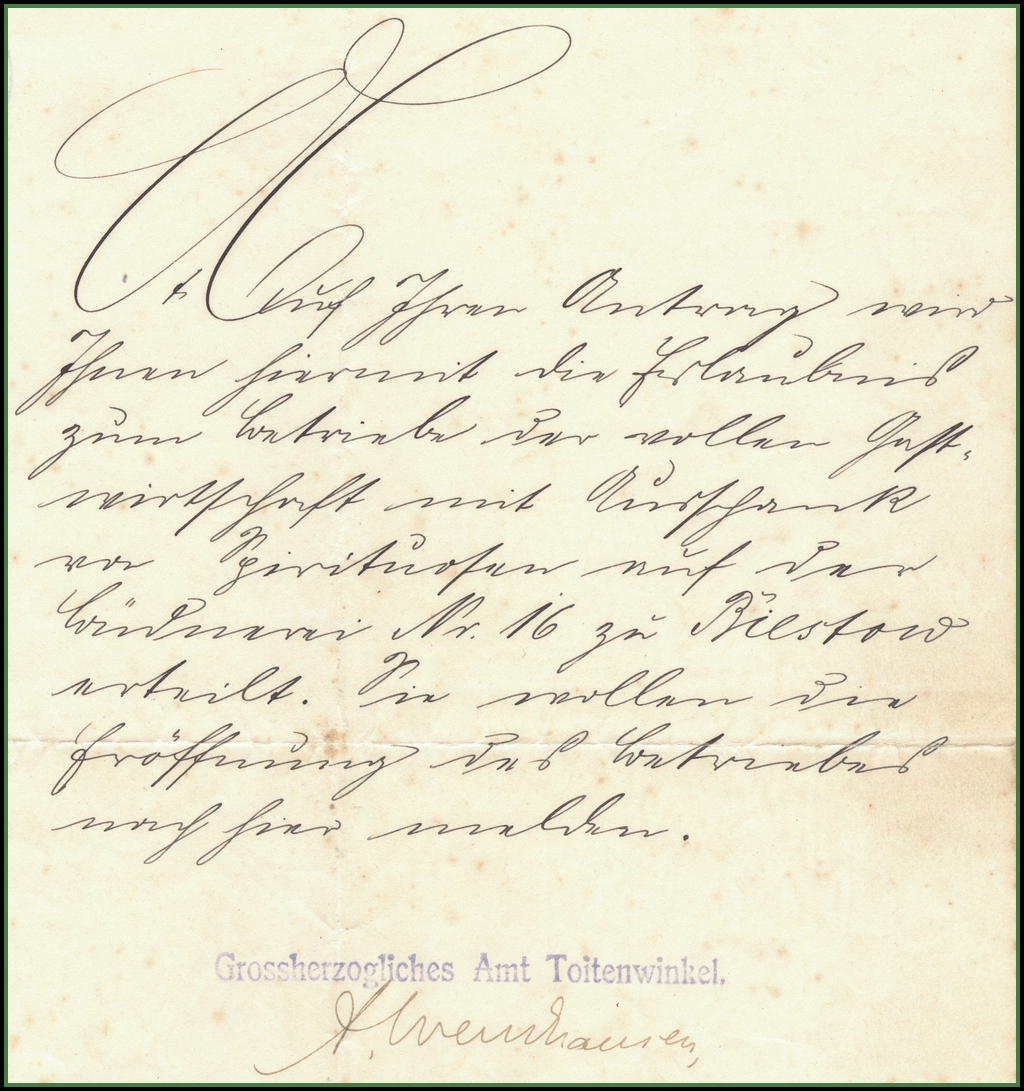 Auf Ihren Antrag wird
Ihnen hiermit die Erlaubnis
zum Betriebe der vollen Gast-
wirtschaft mit Ausschank
von Spirituosen auf der
Büdnerei Nr. 16 zu Biestow
erteilt. Sie wollen die
Eröffnung des Betriebes
nach hier melden.
Grossherzogliches Amt Toitenwinkel.